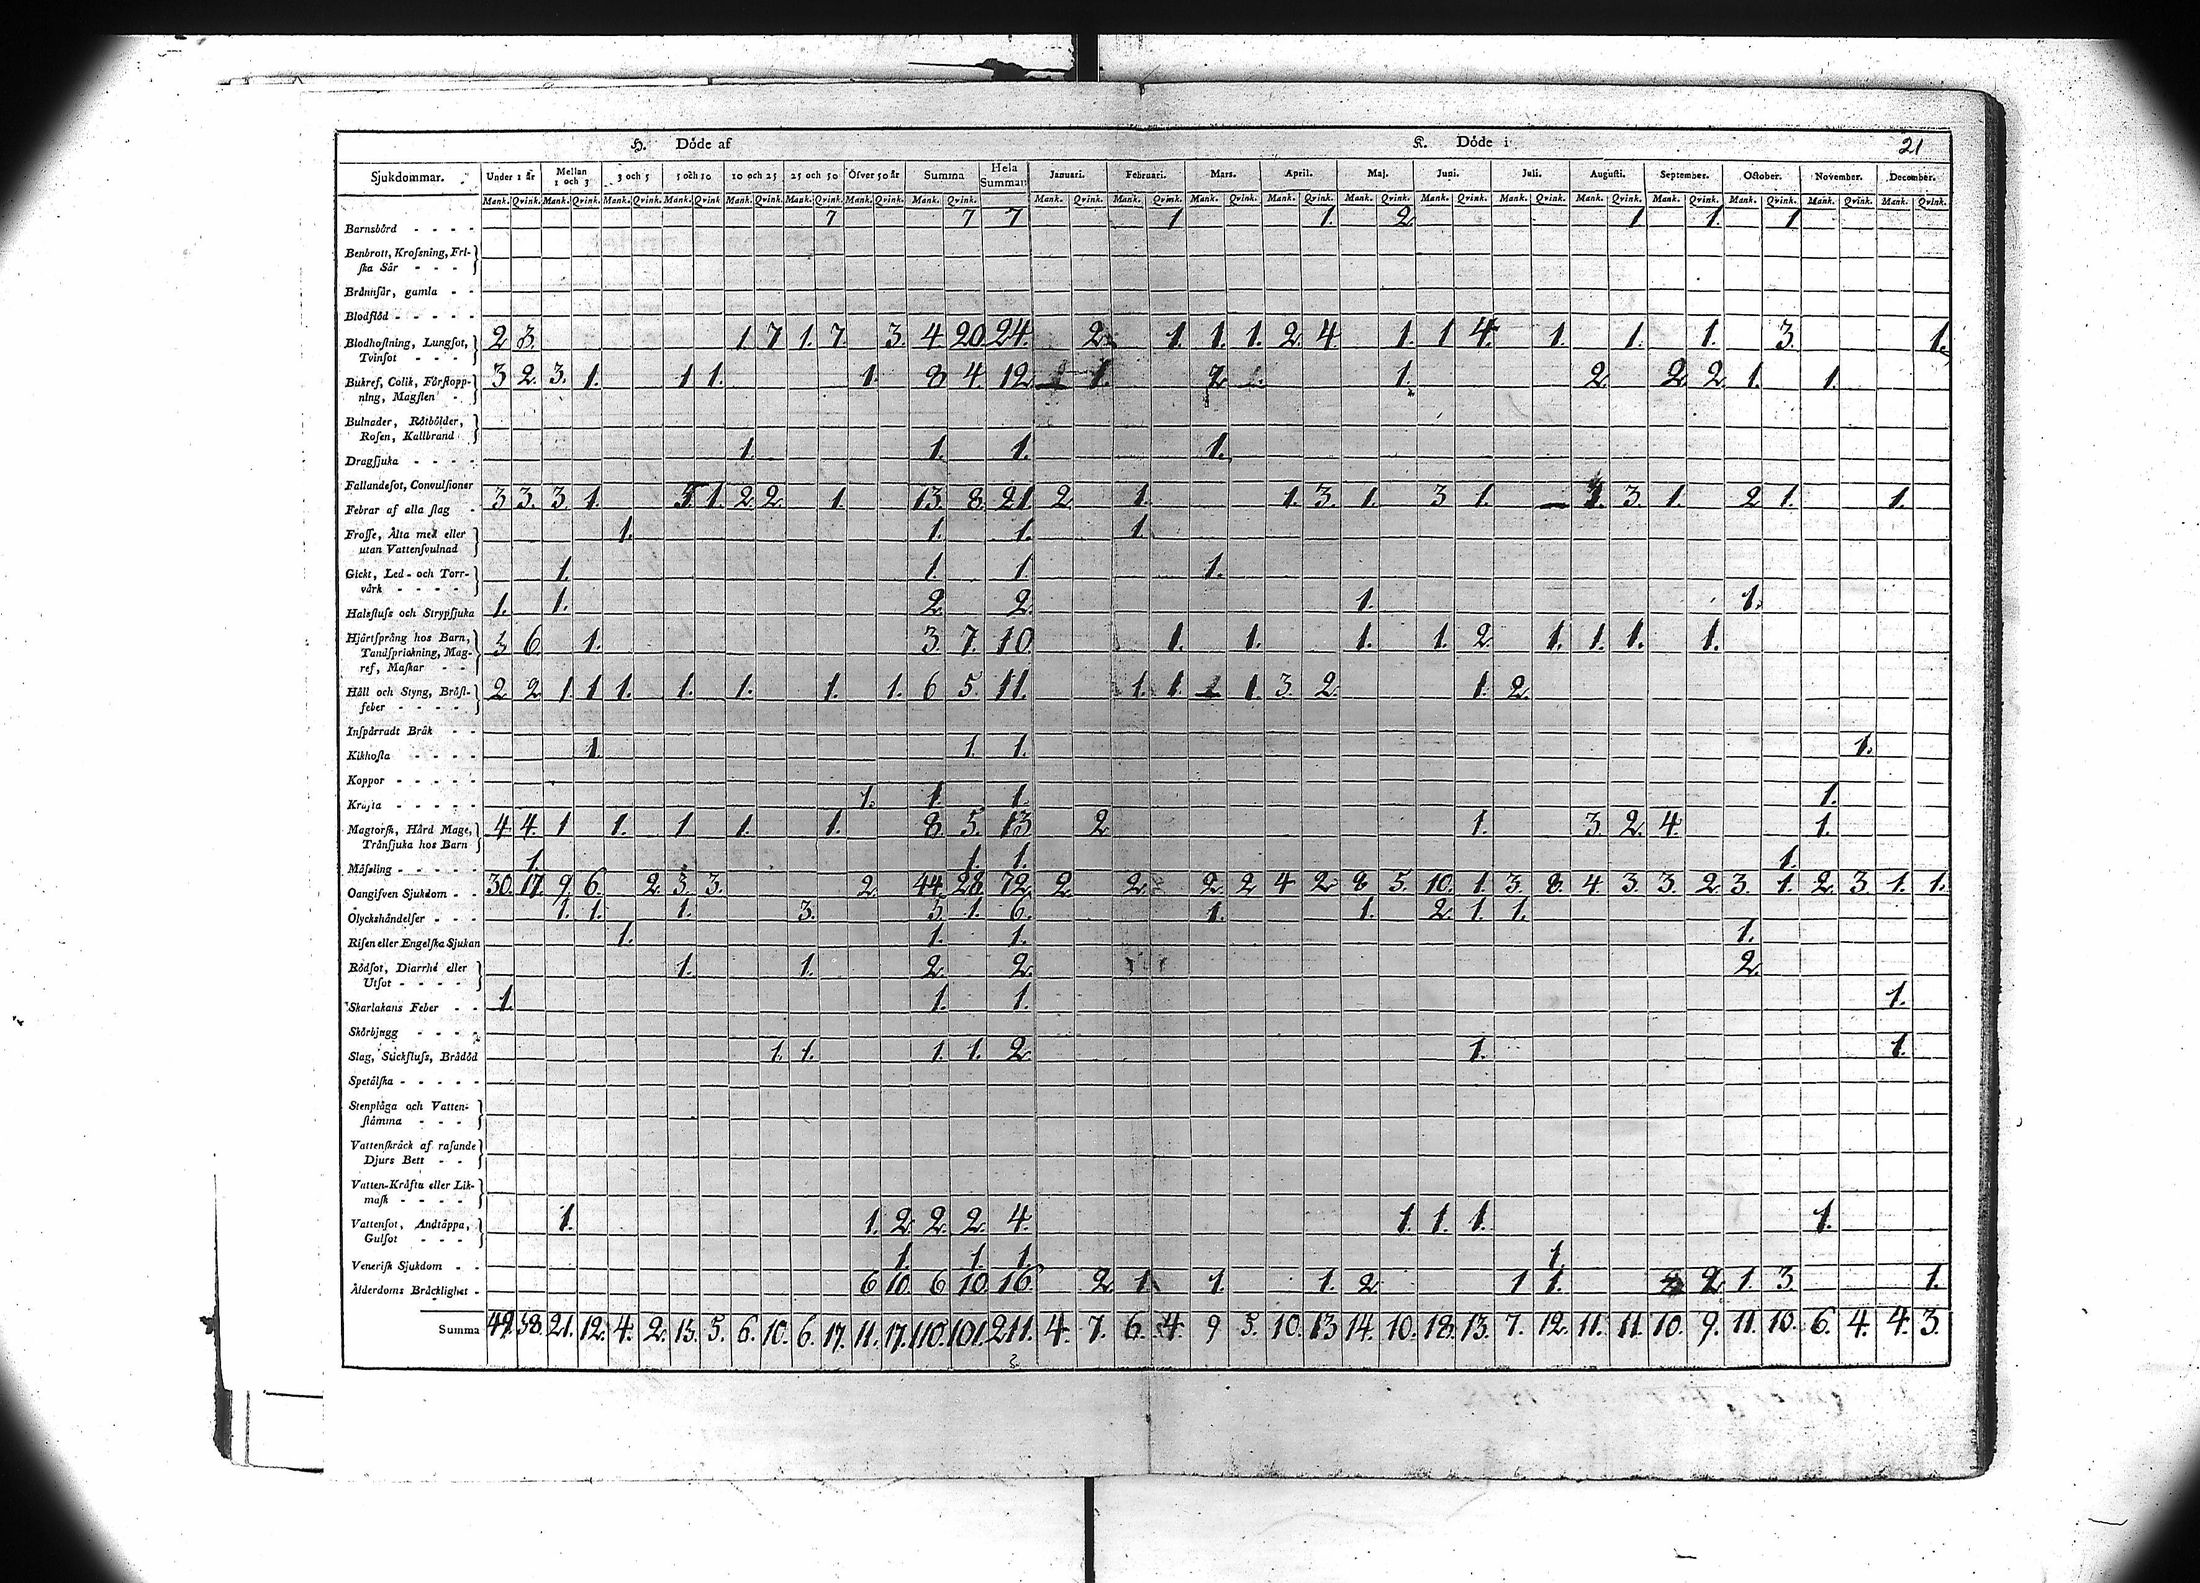 H. Döde af K. Döde i 21
Sjukdommar. Under 1 år Mellan 1 och 3 3 och 5 5 och 10 10 och 25 25 och 50 Öfver 50 år Summa Hela Summan Januari. Februari. Mars. April. Maj. Juni. Juli. Augusti. September. October. November. December.
Mank. Qvink. Mank. Qvink. Mank. Qvink. Mank. Qvink. Mank. Qvink. Mank. Qvink. Mank. Qvink. Mank. Qvink. Mank. Qvink. Mank. Qvink. Mank. Qvink. Mank. Qvink. Mank. Qvink. Mank. Qvink. Mank. Qvink. Mank. Qvink. Mank. Qvink. Mank. Qvink. Mank. Qvink. Mank. Qvink.
Barnsbörd - - - - 7 7 7 1 1. 2 1 1. 1
Benbrott, Krosſning, Friſ-
ſka Sår - - -
Brännſår, gamla - -
Blodflöd - - - - -
Blodhoſtning, Lungſot, 2 3. 1. 7 1. 7. 3. 4. 20. 24. 2. 1. 1. 1. 2. 4. 1. 1 4. 1. 1. 1. 3. 1.
Tvinſot - - -
Bukref, Colik, Förſtopp- 3 2. 3. 1. 1 1. 1. 8 4 12 1. 1. 2 2. 2 1. 1.
ning, Magſten -
Bulnader, Rötbölder,
Roſen, Kallbrand
Dragſjuka - - - - 1. 1. 1. 1.
Fallandeſot, Convulſioner
Febrar af alla ſlag - 3 3. 3. 1. 1. 2. 2. 1. 13. 8. 21. 2. 1. 1. 3. 1. 3 1. 3. 1. 2 1. 1.
Froſſe, Älta med eller 1. 1. 1. 1.
utan Vattenſvulnad
Gickt, Led- och Torr- 1. 1. 1. 1.
värk - - - -
Halsfluſs och Strypſjuka 1. 1. 2. 2. 1. 1.
Hjärtſprång hos Barn, 3 6. 1. 3. 7. 10. 1. 1. 1. 1. 2. 1. 1. 1. 1.
Tandſprickning, Mag-
ref, Maſkar - -
Håll och Styng, Bröſt- 2 2. 1. 1 1. 1. 1. 1. 1. 6 5. 11. 1. 1. 1 1. 3. 2. 1. 2.
feber - - - - -
Inſpärradt Bråk - -
Kikhoſta - - - - 1. 1. 1. 1.
Koppor - - - - -
Kräfta - - - - - 1. 1. 1. 1.
Magtorſk, Hård Mage, 4. 4. 1 1. 1 1. 1. 8. 5. 13 2 1. 3. 2. 4. 1.
Tränſjuka hos Barn
Mäſsling - - - - - 1. 1. 1. 1.
Oangifven Sjukdom - - 30. 17. 9. 6. 2. 5. 3. 2. 44. 28. 72. 2. 2. 2. 2 4 2. 8 5. 10. 1. 3. 8. 4. 3. 3. 2. 3. 1. 2. 3. 1. 1.
Olyckshändelſer - - - 1. 1. 1. 3. 5. 1. 6. 1. 1. 2. 1. 1.
Riſen eller Engelſka Sjukan 1. 1. 1. 1.
Rödſot, Diarrhé eller 1. 1. 2. 2. 2.
Utſot - - - -
Skarlakans Feber - - 1. 1. 1. 1.
Skörbjugg - - - -
Slag, Stickfluſs, Brådöd 1. 1. 1. 1. 2 1. 1.
Spetälſka - - - - -
Stenplåga och Vatten-
ſtämma - - -
Vattenſkräck af raſande
Djurs Bett - -
Vatten-Kräfta eller Lik-
maſk - - - -
Vattenſot, Andtäppa, 1. 1. 2. 2. 2. 4. 1. 1. 1. 1.
Gulſot - - -
Veneriſk Sjukdom - - 1. 1. 1. 1
Ålderdoms Bräcklighet - 6 10. 6 10. 16. 2 1. 1. 1. 2. 1 1. 2 1. 3. 1.
Summa 49. 38. 21. 12. 4. 2. 13. 5. 6. 10. 6. 17. 11. 17. 110. 101. 211. 4. 7. 6. 4. 9 5. 10. 13 14. 10. 18. 13. 7. 12. 11. 11. 10. 9. 11. 10. 6. 4. 4. 3.